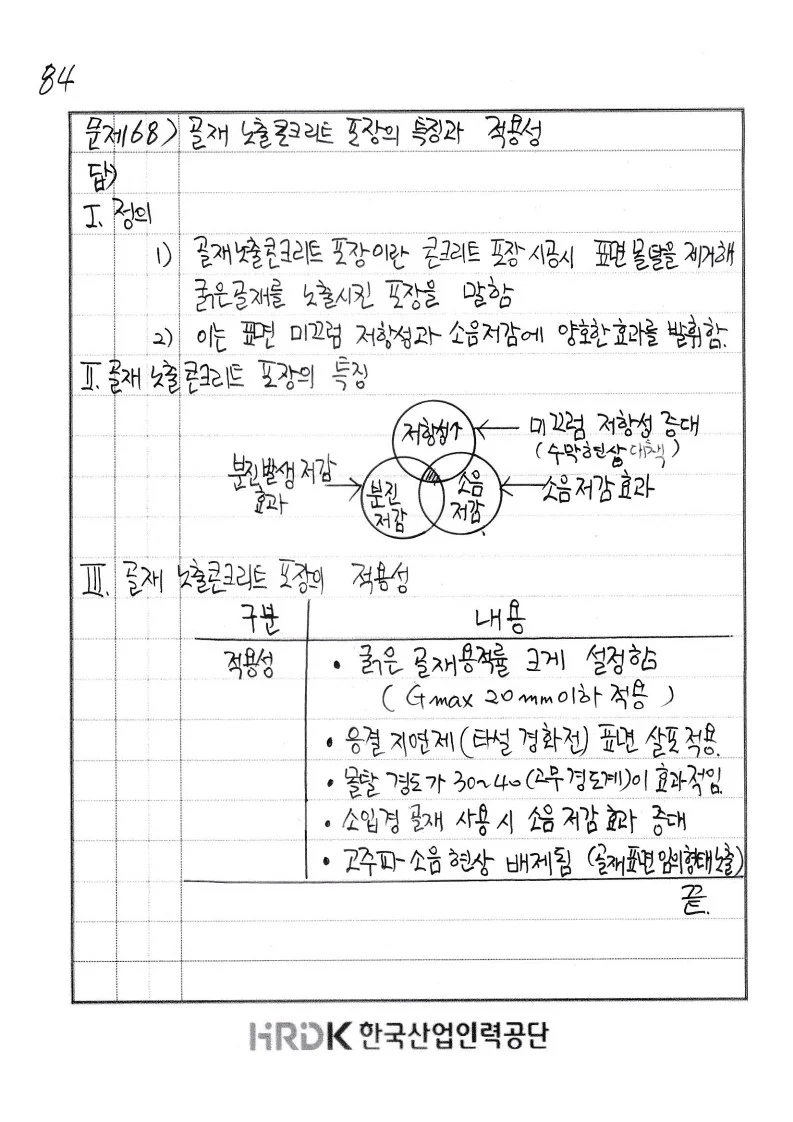 84
문제168) 골재 노출콘크리트 포장의 특징과 적용성
답)
I. 정의
1) 골재노출콘크리트 포장이란 콘크리트 포장 시공시 표면 몰탈을 제거해
굵은골재를 노출시킨 포장을 말함
2) 이는 표면 미끄럼 저항성과 소음저감에 양호한 효과를 발휘함.
II. 골재 노출콘크리트 포장의 특징
저항성↑
미끄럼 저항성 증대
(수막현상 대책)
분진발생 저감
효과
분진
저감
소음
저감
소음저감 효과
III. 골재 노출콘크리트 포장의 적용성
구분 내용
적용성 • 굵은 골재용적률 크게 설정함
( Gmax 20mm이하 적용 )
• 응결 지연제(타설 경화전) 표면 살포적용.
• 몰탈 경도가 30~40(고무경도계)이 효과적임
• 소입경 골재 사용시 소음 저감 효과 증대
• 고주파 소음 현상 배제됨 (골재표면 임의형태노출)
끝.
HRDK 한국산업인력공단